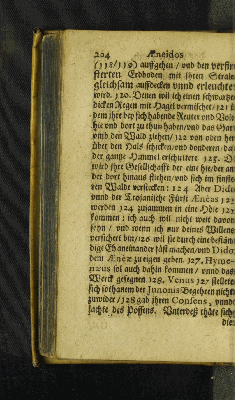 204 Æneidos
(118/119) auffgehen / vnd den verfin-
sterten Erdboden mit jhren Stralen
gleichsam auffdecken vnnd erleuchten
wird. 120. Denen wil ich einen schwartzen
dicken Regen mit Hagel vermischet / 121
dem jhre bey sich habende Reuter vnd
hie vnd dort zu thun haben / vnd das Garn
vmb den Wald ziehen / 122 von oben her
über den Hals schicken / vnd donderen / das
der gantze Himmel erschüttere 123. Da
wird jhre Gesellschafft der eine hie / der an-
der dort hinaus fliehen / vnd sich im finstern
Walde verstecken: 124 Aber Dido
vnnd der Trojanische Fürst Æneas 125
werden 124 zusammen in eine Höle 127
kommen: ich auch wil nicht weit davon
seyn / vnd wenn ich nur deines Willens
versichert bin / 126 wil sie durch eine bestän-
dige Eh aneinander fäst machen / vnd Dido
dem Æneæ zu eigen geben. 127. Hyme-
næus sol auch dahin kommen / vnnd das
Werck gesegnen 128. Venus 127 stellete
sich sothanem der Junonis Begehren nicht
zuwider / 128 gab jhren Consens, vnnd
lachte des Possens. Unterdeß thäte sich
die